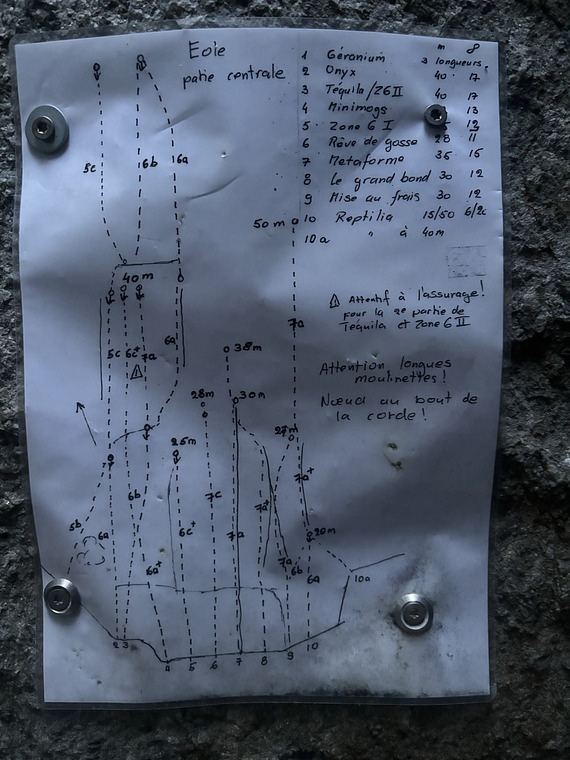 Eoie
patie centrale
m 8
1 Géranium 3 longueurs
2 Onyx 40 17
3 Téquila/Z6 II 40 17
4 Minimogs 13
5 Zone 6 I 12
6 Rêve de gosse 28 11
7 Metaforme 35 15
8 Le grand bond 30 12
9 Mise au frais 30 12
10 Reptilia 15/50
10a " à 40m
⚠ Attentif à l'assurage!
pour la 2e partie de
Tequila et Zone 6 II
Attention longues
moulinettes!
Nœud au bout de
la corde!
5c 6b 6a
50m
40m
5c 6c+ 7a 6a
7a
38m
28m 30m
25m
27m
5b 6a 6b 6a+ 6c+ 7c 7a 7a 7a+
20m
7a 6b 6a
10a
2 3 4 5 6 7 8 9 10